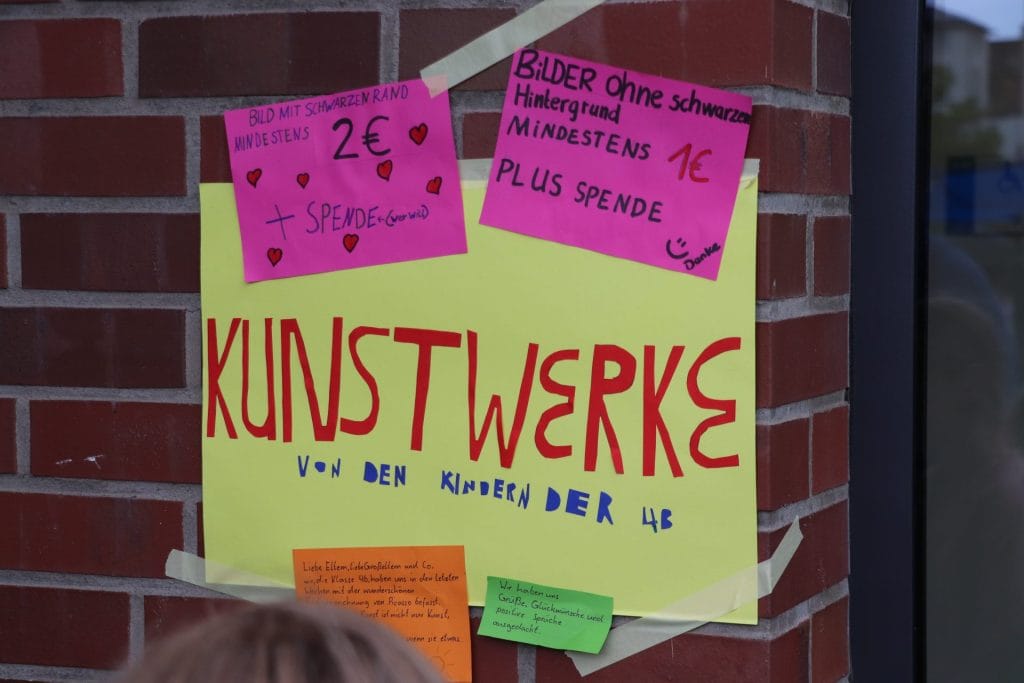 BILD MIT SCHWARZEN RAND
MINDESTENS 2€
+ SPENDE ← (wer will)
BiLDER ohne schwarzen
Hintergrund
MiNDESTENS 1€
PLUS SPENDE
Danke
KUNSTWERKE
VON DEN KINDERN DER 4B
Liebe Eltern, liebe Großeltern und Co,
wir, die Klasse 4b, haben uns in den letzten
Wochen mit der wunderschönen
von Picasso befasst.
ist nicht nur Kunst,
wenn sie etwas
Wir haben uns
Grüße, Glückwünsche und
positive Sprüche
ausgedacht.